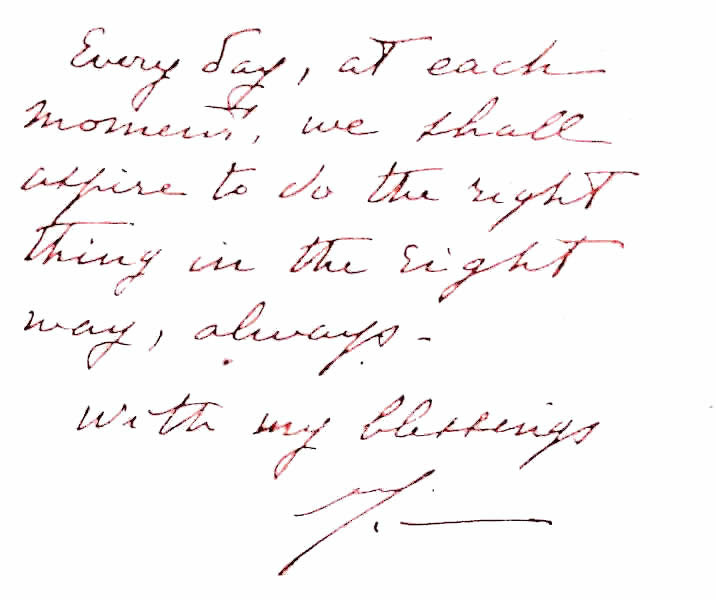 Every day, at each
moment, we shall
aspire to do the right
thing in the right
way, always -
With my blessings